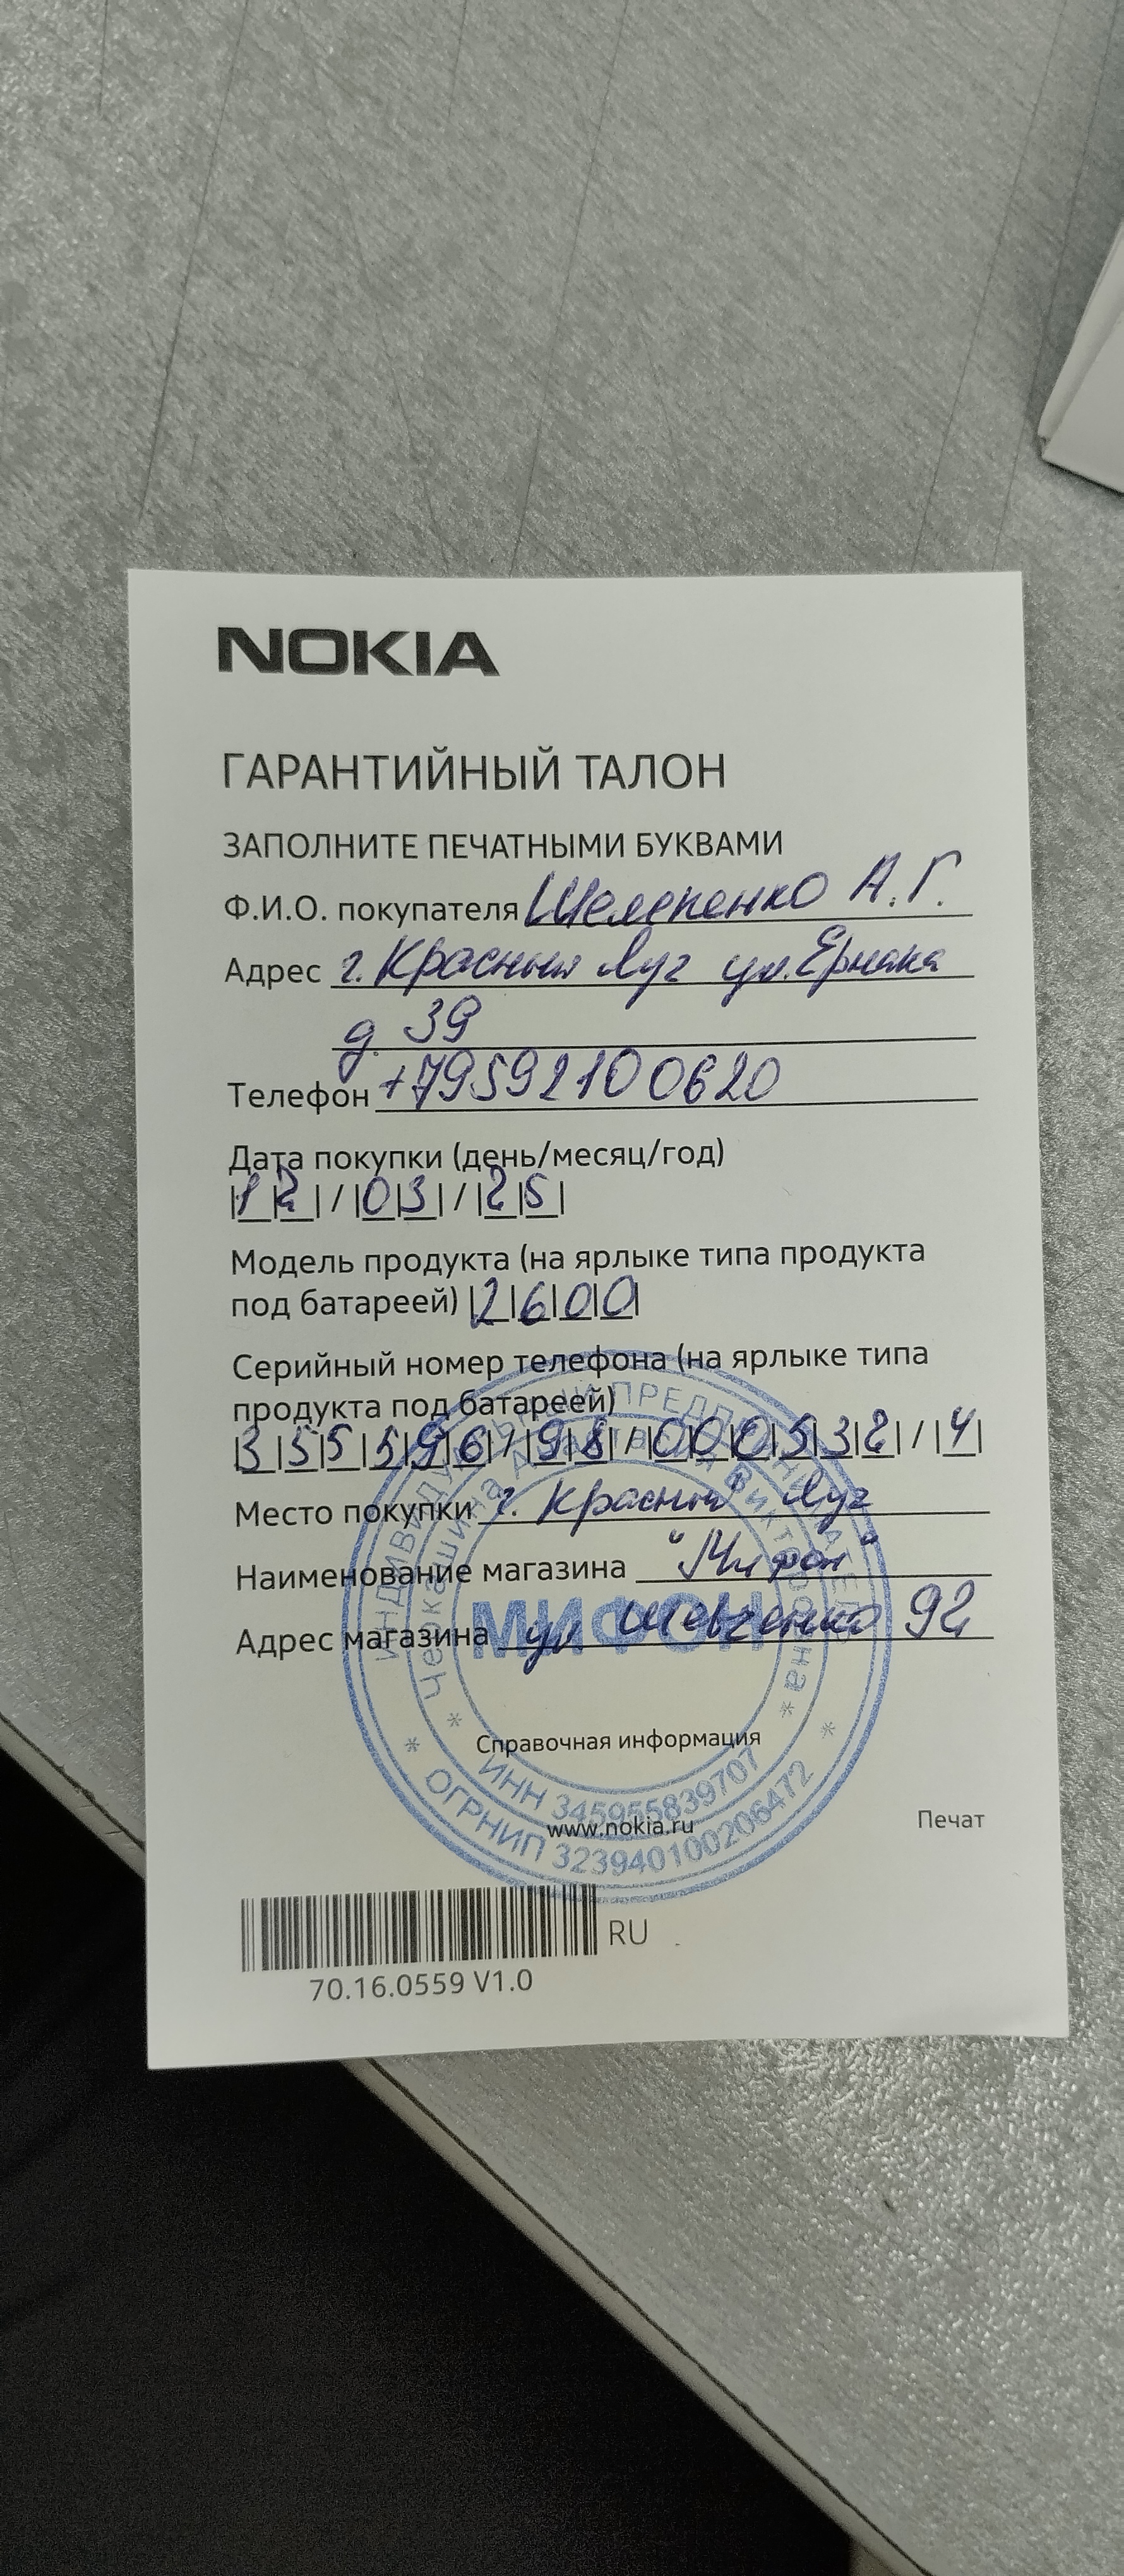 NOKIA
ГАРАНТИЙНЫЙ ТАЛОН
ЗАПОЛНИТЕ ПЕЧАТНЫМИ БУКВАМИ
Ф.И.О. покупателя Шелепенко А.Г.
Адрес г. Красный Луг ул. Ермака
д. 39
Телефон +79592100620
Дата покупки (день/месяц/год)
|1|2|/|0|3|/|2|5|
Модель продукта (на ярлыке типа продукта
под батареей) |2|6|0|0|
Серийный номер телефона (на ярлыке типа
продукта под батареей)
|3|5|5|5|9|6|/|9|8|/|0|0|0|5|3|2|/|4|
Место покупки г. Красный Луг
Наименование магазина "Мифон"
Адрес магазина ул Шевченко 92
ИНДИВИДУАЛЬНЫЙ ПРЕДПРИНИМАТЕЛЬ
Викторовна
МИФОН
Справочная информация
ИНН 345955839707
www.nokia.ru
Печат
ОГРНИП 323940100206472
RU
70.16.0559 V1.0